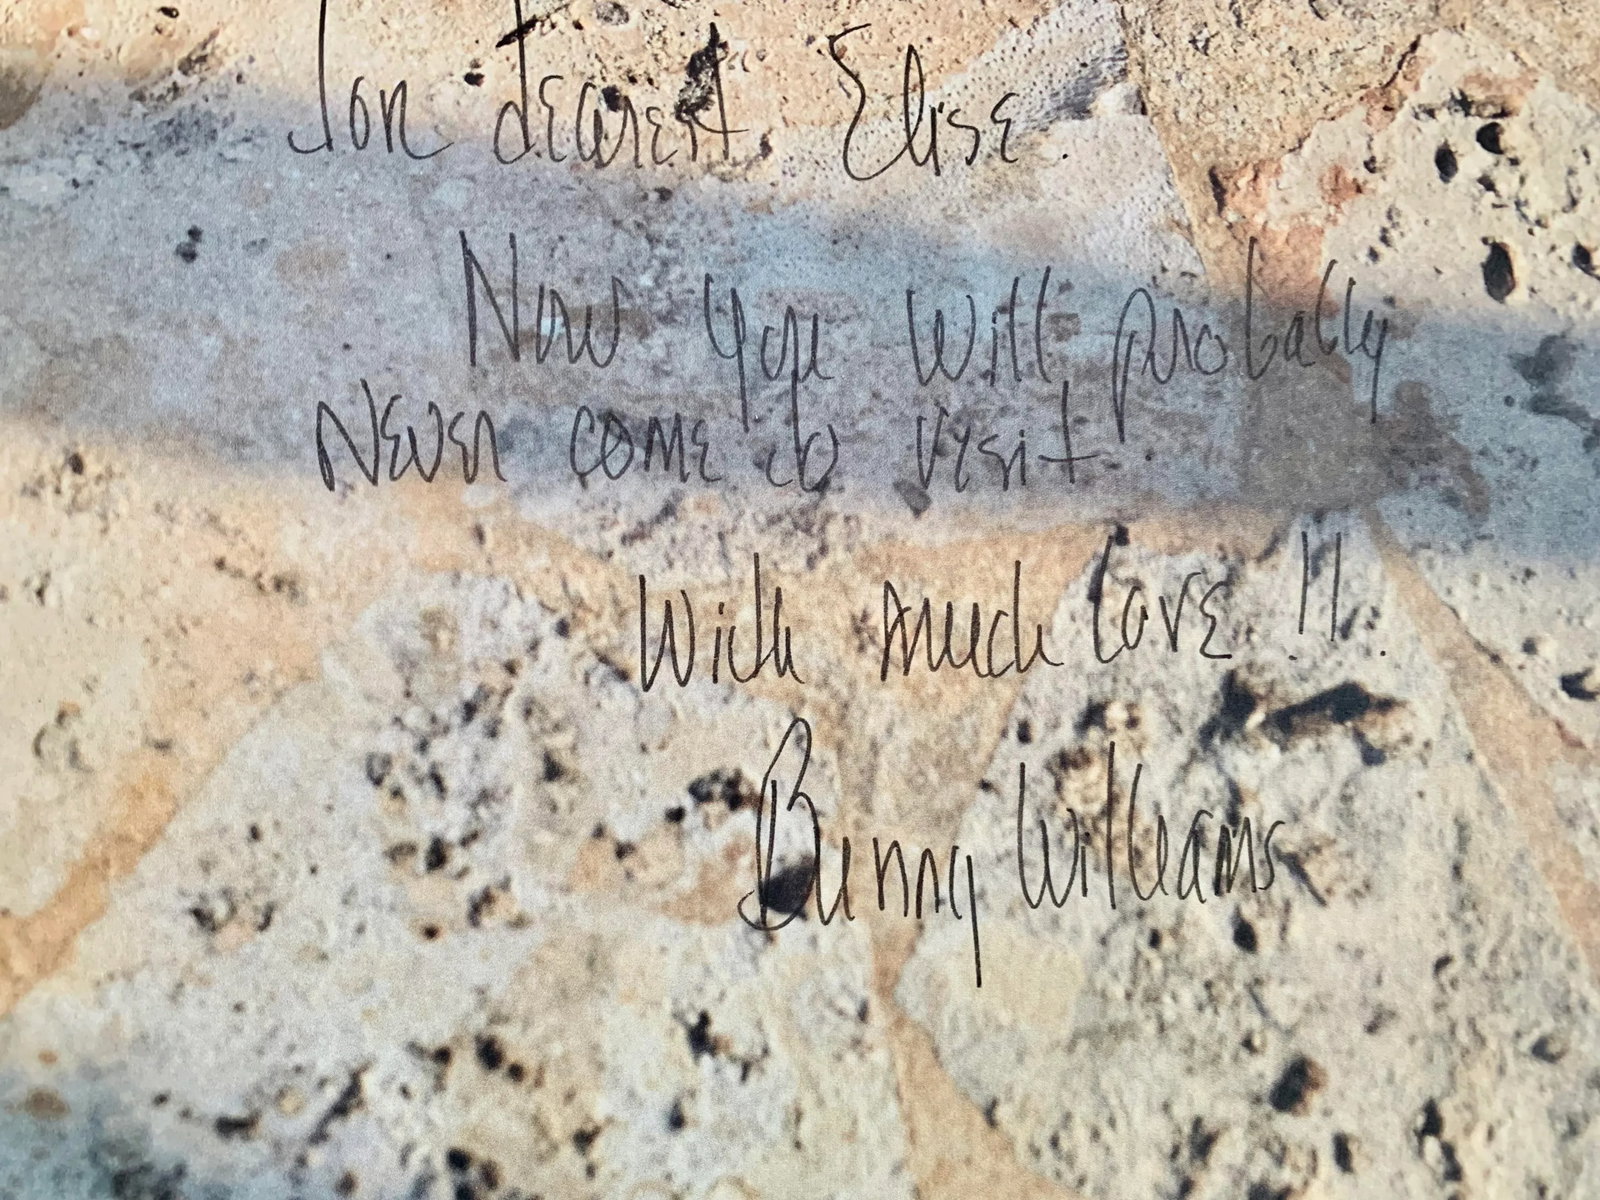 For dearest Elise.
Now you will probably
never come to visit.
With much love!!
Bunny Williams